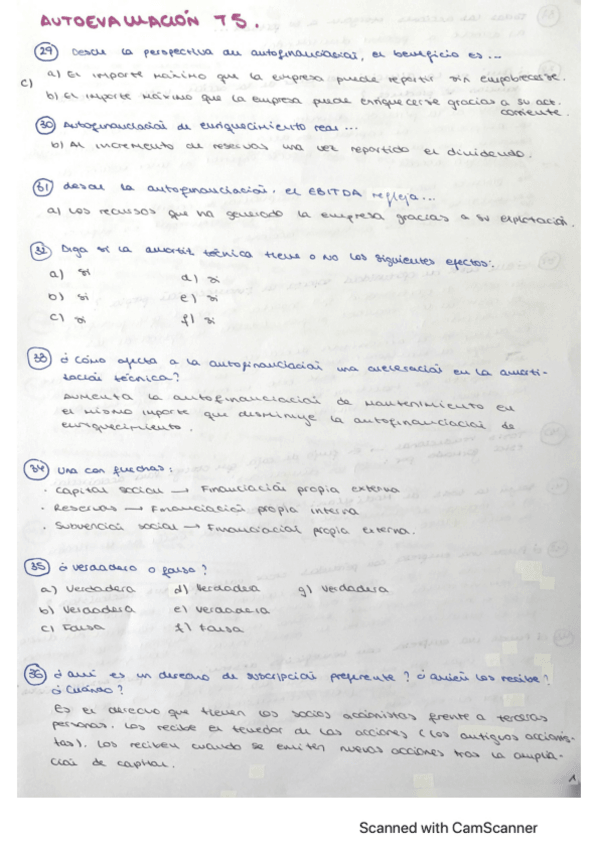 AUTOEVALUACIÓN T5.
29 Desde la perspectiva de autofinanciación, el beneficio es...
a) El importe máximo que la empresa puede repartir sin empobrecerse.
c)
b) El importe máximo que la empresa puede enriquecerse gracias a su act.
corriente.
30 Autofinanciación de enriquecimiento real...
b) Al incremento de reservas una vez repartido el dividendo.
31 desde la autofinanciación, el EBITDA refleja...
a) Los recursos que ha generado la empresa gracias a su explotación.
32 Diga si la amortiz técnica tiene o no los siguientes efectos:
a) si d) si
b) si e) si
c) si f) si
33 ¿Cómo afecta a la autofinanciación una aceleración en la amorti-
zación técnica?
Aumenta la autofinanciación de mantenimiento en
el mismo importe que disminuye la autofinanciación de
enriquecimiento.
34 Una con flechas:
· Capital social → Financiación propia externa
· Reservas → Financiación propia interna
· Subvención social → Financiación propia externa.
35 ¿Verdadero o falso?
a) Verdadera d) Verdadera g) Verdadera
b) Verdadera e) Verdadera
c) Falsa f) Falsa
36 ¿Qué es un derecho de suscripción preferente? ¿Quién los recibe?
¿Cuándo?
Es el derecho que tienen los socios accionistas frente a terceras
personas. Los recibe el tenedor de las acciones (los antiguos accionis-
tas). Los reciben cuando se emiten nuevas acciones tras la amplia-
ción de capital.
1
Scanned with CamScanner